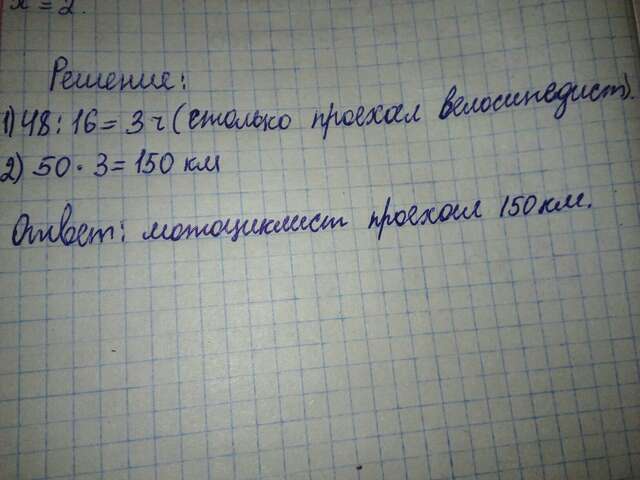 x = 2.
Решение:
1) 48 : 16 = 3 ч (столько проехал велосипедист).
2) 50 · 3 = 150 км
Ответ: мотоциклист проехал 150 км.